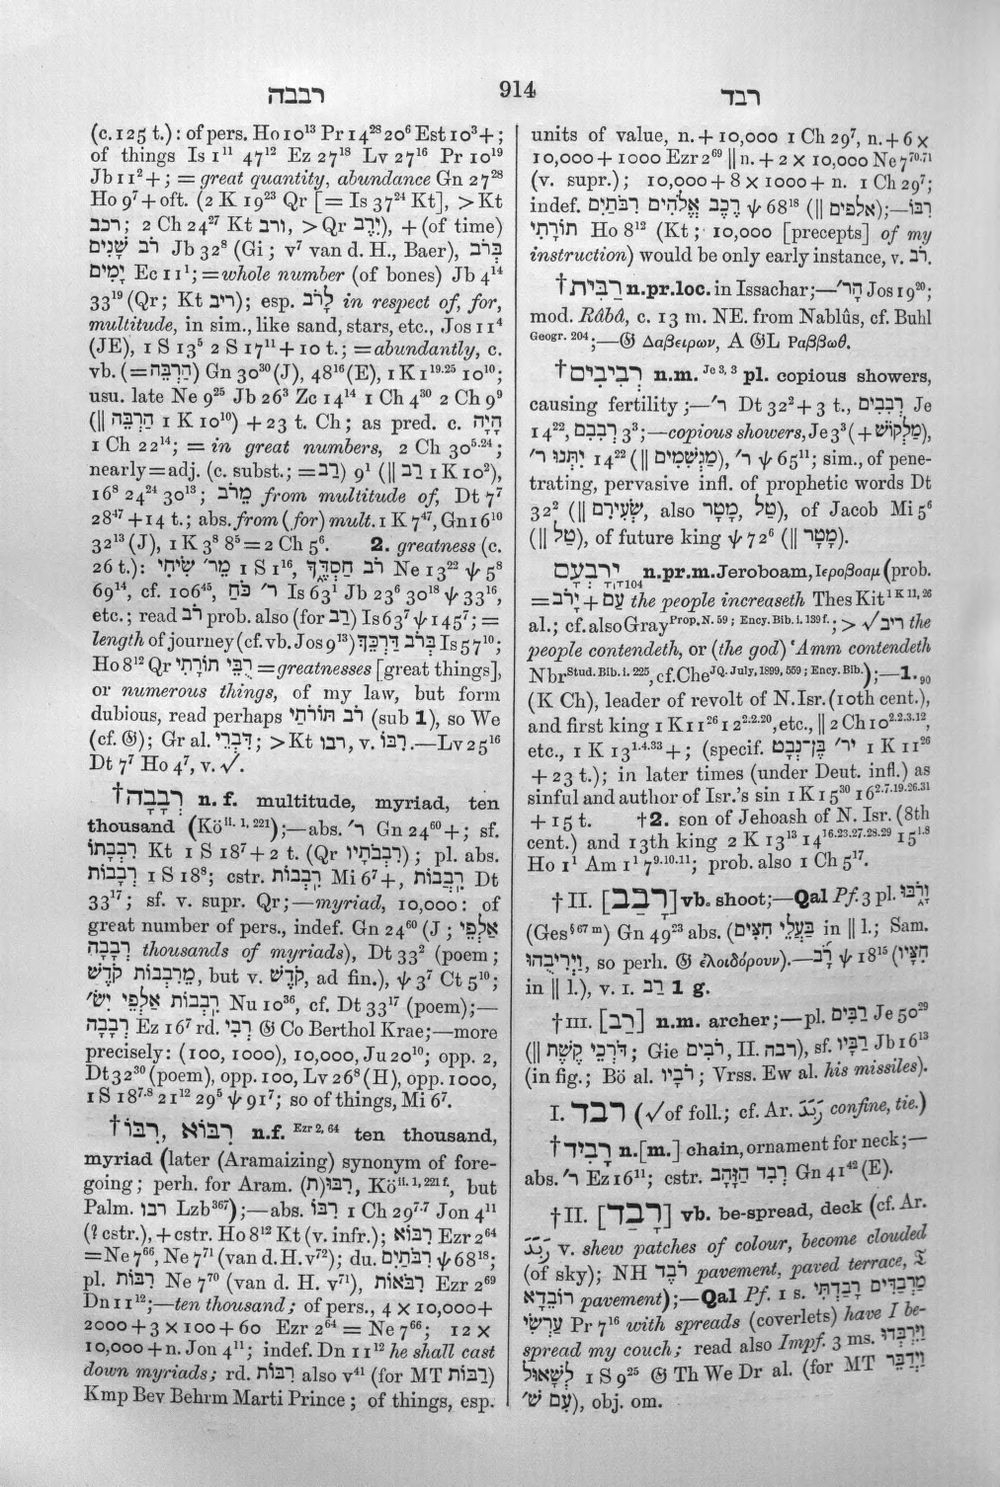 רבבה 914 רבד
(c. 125 t.): of pers. Ho 10¹³ Pr 14²⁸ 20⁶ Est 10³+;
of things Is 1¹¹ 47¹² Ez 27¹⁸ Lv 27¹⁶ Pr 10¹⁹
Jb 11²+; = great quantity, abundance Gn 27²⁸
Ho 9⁷+oft. (2 K 19²³ Qr [= Is 37²⁴ Kt], >Kt
רכב; 2 Ch 24²⁷ Kt ורב, >Qr יִרֶב), + (of time)
רֹב שָׁנִים Jb 32⁸ (Gi; v⁷ van d. H., Baer), בְּרֹב
יָמִים Ec 11¹; =whole number (of bones) Jb 4¹⁴
33¹⁹ (Qr; Kt ריב); esp. לָרֹב in respect of, for,
multitude, in sim., like sand, stars, etc., Jos 11⁴
(JE), 1 S 13⁵ 2 S 17¹¹+10 t.; =abundantly, c.
vb. (=הַרְבֵּה) Gn 30³⁰ (J), 48¹⁶ (E), 1 K 1¹⁹·²⁵ 10¹⁰;
usu. late Ne 9²⁵ Jb 26³ Zc 14¹⁴ 1 Ch 4³⁰ 2 Ch 9⁹
(‖ הַרְבֵּה 1 K 10¹⁰) +23 t. Ch; as pred. c. הָיָה
1 Ch 22¹⁴; = in great numbers, 2 Ch 30⁵·²⁴;
nearly=adj. (c. subst.; =רַב) 9¹ (‖ רַב 1 K 10²),
16⁸ 24²⁴ 30¹³; מֵרֹב from multitude of, Dt 7⁷
28⁴⁷+14 t.; abs. from (for) mult. 1 K 7⁴⁷, Gn 16¹⁰
32¹³ (J), 1 K 3⁸ 8⁵=2 Ch 5⁶. 2. greatness (c.
26 t.): מֵר׳ שִׂיחִי 1 S 1¹⁶, רֹב חַסְדֶּךָ Ne 13²² ψ 5⁸
69¹⁴, cf. 106⁴⁵, ר׳ כֹּחַ Is 63¹ Jb 23⁶ 30¹⁸ ψ 33¹⁶,
etc.; read רֹב prob. also (for רַב) Is 63⁷ ψ 145⁷; =
length of journey (cf. vb. Jos 9¹³) בְּרֹב דַּרְכֵּךְ Is 57¹⁰;
Ho 8¹² Qr רֻבֵּי תּוֹרָתִי =greatnesses [great things],
or numerous things, of my law, but form
dubious, read perhaps רֹב תּוֹרֹתַי (sub 1), so We
(cf. 𝔊); Gr al. דִּבְרֵי; >Kt רבו, v. רִבּוֹ.—Lv 25¹⁶
Dt 7⁷ Ho 4⁷, v. √.
†רְבָבָה n. f. multitude, myriad, ten
thousand (Köⁱⁱ·¹·²²¹);—abs. ר׳ Gn 24⁶⁰+; sf.
רִבְבֹתוֹ Kt 1 S 18⁷+2 t. (Qr רִבְבֹתָיו); pl. abs.
רְבָבוֹת 1 S 18⁸; cstr. רִבְבוֹת Mi 6⁷+, רִבֲבוֹת Dt
33¹⁷; sf. v. supr. Qr;—myriad, 10,000: of
great number of pers., indef. Gn 24⁶⁰ (J; אַלְפֵי
רְבָבָה thousands of myriads), Dt 33² (poem;
מֵרִבְבוֹת קֹדֶשׁ, but v. קֹדֶשׁ, ad fin.), ψ 3⁷ Ct 5¹⁰;
רִבֲבוֹת אַלְפֵי יִשׂ׳ Nu 10³⁶, cf. Dt 33¹⁷ (poem);—
רְבָבָה Ez 16⁷ rd. רְבִי 𝔊 Co Berthol Krae;—more
precisely: (100, 1000), 10,000, Ju 20¹⁰; opp. 2,
Dt 32³⁰ (poem), opp. 100, Lv 26⁸ (H), opp. 1000,
1 S 18⁷·⁸ 21¹² 29⁵ ψ 91⁷; so of things, Mi 6⁷.
†רִבּוֹ, רִבּוֹא n.f. Ezr 2, 64 ten thousand,
myriad (later (Aramaizing) synonym of fore-
going; perh. for Aram. רִבּוּ(ת), Köⁱⁱ·¹·²²¹ ᶠ·, but
Palm. רבו Lzb³⁶⁷);—abs. רִבּוֹ 1 Ch 29⁷·⁷ Jon 4¹¹
(? cstr.), +cstr. Ho 8¹² Kt (v. infr.); רִבּוֹא Ezr 2⁶⁴
=Ne 7⁶⁶, Ne 7⁷¹ (van d. H. v⁷²); du. רִבֹּתַיִם ψ 68¹⁸;
pl. רִבּוֹת Ne 7⁷⁰ (van d. H. v⁷¹), רִבֹּאוֹת Ezr 2⁶⁹
Dn 11¹²;—ten thousand; of pers., 4 × 10,000+
2000+3 × 100+60 Ezr 2⁶⁴ = Ne 7⁶⁶; 12 ×
10,000+n. Jon 4¹¹; indef. Dn 11¹² he shall cast
down myriads; rd. רִבּוֹת also v⁴¹ (for MT רַבּוֹת)
Kmp Bev Behrm Marti Prince; of things, esp.
units of value, n. + 10,000 1 Ch 29⁷, n. + 6 ×
10,000+1000 Ezr 2⁶⁹ ‖ n. + 2 × 10,000 Ne 7⁷⁰·⁷¹
(v. supr.); 10,000+8 × 1000+n. 1 Ch 29⁷;
indef. רֶכֶב אֱלֹהִים רִבֹּתַיִם ψ 68¹⁸ (‖ אלפים);—רִבּוֹ
תּוֹרָתִי Ho 8¹² (Kt; 10,000 [precepts] of my
instruction) would be only early instance, v. רֹב.
†רַבִּית n.pr.loc. in Issachar;—הָר׳ Jos 19²⁰;
mod. Râbâ, c. 13 m. NE. from Nablûs, cf. Buhl
Geogr. 204;—𝔊 Δαβειρων, A 𝔊L Ραββωθ.
†רְבִיבִים n.m. Je 3, 3 pl. copious showers,
causing fertility;—ר׳ Dt 32²+3 t., רְבִבִים Je
14²², רְבִבִם 3³;—copious showers, Je 3³ (+מַלְקוֹשׁ),
יִתְּנוּ ר׳ 14²² (‖ מַגְשִׁמִים), ר׳ ψ 65¹¹; sim., of pene-
trating, pervasive infl. of prophetic words Dt
32² (‖ שְׂעִירִם, also מָטָר, טַל), of Jacob Mi 5⁶
(‖ טַל), of future king ψ 72⁶ (‖ מָטָר).
יָרָבְעָם₁₀₄ n.pr.m. Jeroboam, Ιεροβοαμ (prob.
=יֶרֶב + עָם the people increaseth Thes Kit 1 K 11, 26
al.; cf. also Gray Prop. N. 59; Ency. Bib. i. 139 f.; > √ריב the
people contendeth, or (the god) ʿAmm contendeth
Nbr Stud. Bib. i. 225, cf. Che JQ. July, 1899, 559; Ency. Bib.);—1.₉₀
(K Ch), leader of revolt of N. Isr. (10th cent.),
and first king 1 K 11²⁶ 12²·²·²⁰, etc., ‖ 2 Ch 10²·²·³·¹²,
etc., 1 K 13¹·⁴·³³+; (specif. יר׳ בֶּן־נְבָט 1 K 11²⁶
+23 t.); in later times (under Deut. infl.) as
sinful and author of Isr.'s sin 1 K 15³⁰ 16²·⁷·¹⁹·²⁶·³¹
+15 t. †2. son of Jehoash of N. Isr. (8th
cent.) and 13th king 2 K 13¹³ 14¹⁶·²³·²⁷·²⁸·²⁹ 15¹·⁸
Ho 1¹ Am 1¹ 7⁹·¹⁰·¹¹; prob. also 1 Ch 5¹⁷.
†II. [רָבַב] vb. shoot;—Qal Pf. 3 pl. וָרֹבּוּ
(Ges§ 67 m) Gn 49²³ abs. (בַּעֲלֵי חִצִּים in ‖ l.; Sam.
וַיְרִיבֻהוּ, so perh. 𝔊 ἐλοιδόρουν).—רָב ψ 18¹⁵ (חִצָּיו
in ‖ l.), v. I. רַב 1 g.
†III. [רַב] n.m. archer;—pl. רַבִּים Je 50²⁹
(‖ דֹּרְכֵי קֶשֶׁת; Gie רֹבִים, II. רבה), sf. רַבָּיו Jb 16¹³
(in fig.; Bö al. רֹבָיו; Vrss. Ew al. his missiles).
I. רבד (√of foll.; cf. Ar. رَبَدَ confine, tie.)
†רָבִיד n.[m.] chain, ornament for neck;—
abs. ר׳ Ez 16¹¹; cstr. רְבִד הַזָּהָב Gn 41⁴² (E).
†II. [רָבַד] vb. be-spread, deck (cf. Ar.
رَبَدَ v. shew patches of colour, become clouded
(of sky); NH רֹבֶד pavement, paved terrace, 𝔗
רוֹבְדָא pavement);—Qal Pf. 1 s. מַרְבַדִּים רָבַדְתִּי
עַרְשִׂי Pr 7¹⁶ with spreads (coverlets) have I be-
spread my couch; read also Impf. 3 ms. וַיִּרְבְּדוּ
לְשָׁאוּל 1 S 9²⁵ 𝔊 Th We Dr al. (for MT וַיְדַבֵּר
עִם שׁ׳), obj. om.